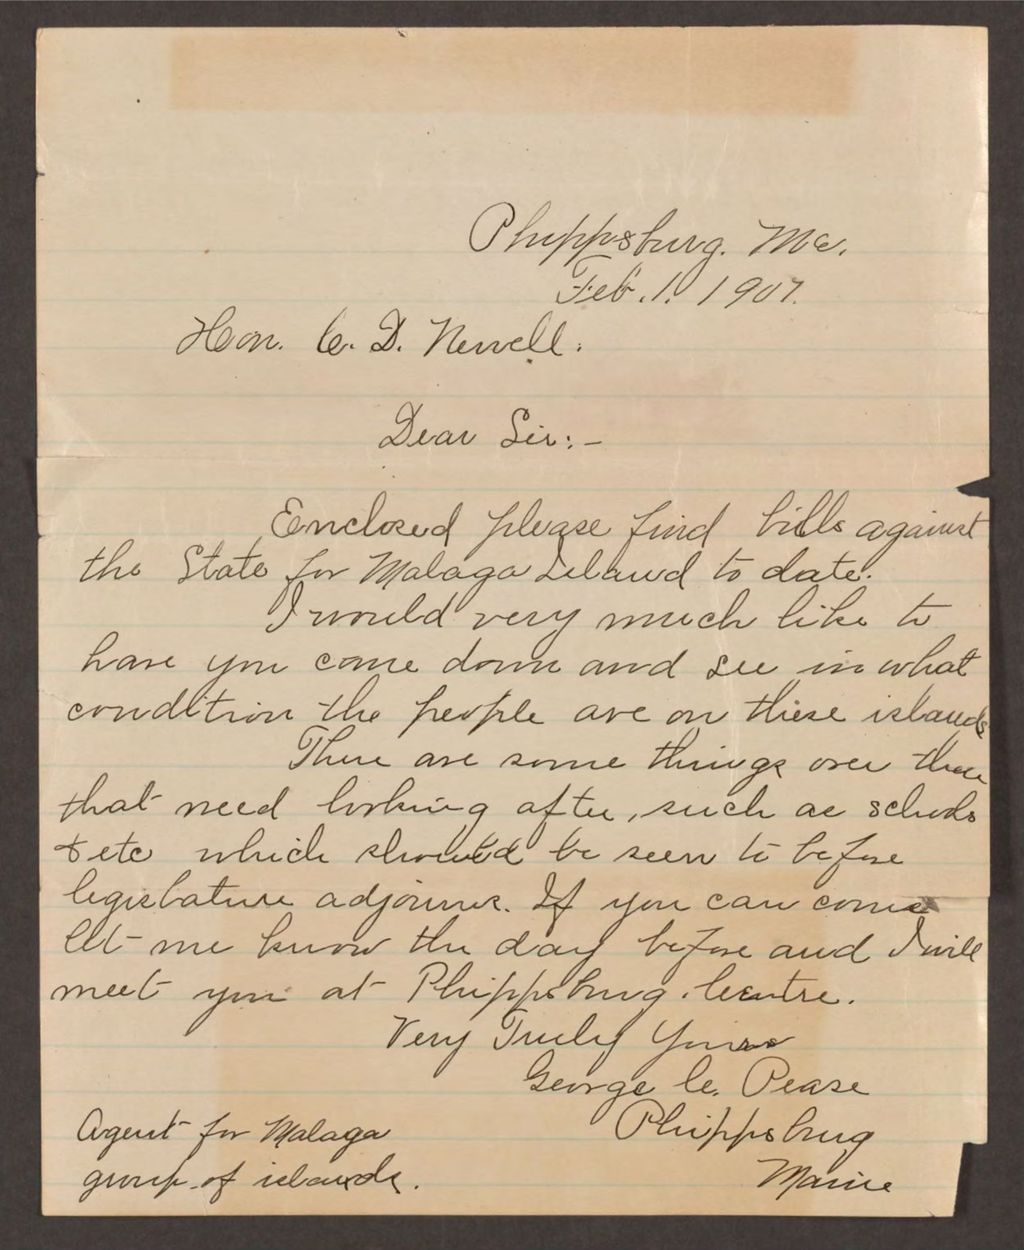 Phippsburg. Me.
Feb. 1. 1907.
Hon. C. D. Newell.
Dear Sir:-
Enclosed please find bills against
the State for Malaga Island to date.
I would very much like to
have you come down and see in what
condition the people are on these islands
There are some things over there
that need looking after, such as schools
& etc which should be seen to before
legislature adjourns. If you can come
let me know the day before and I will
meet you at Phippsburg Centre.
Very Truly Yours
George C. Pease
Agent for Malaga
group of islands.
Phippsburg
Maine